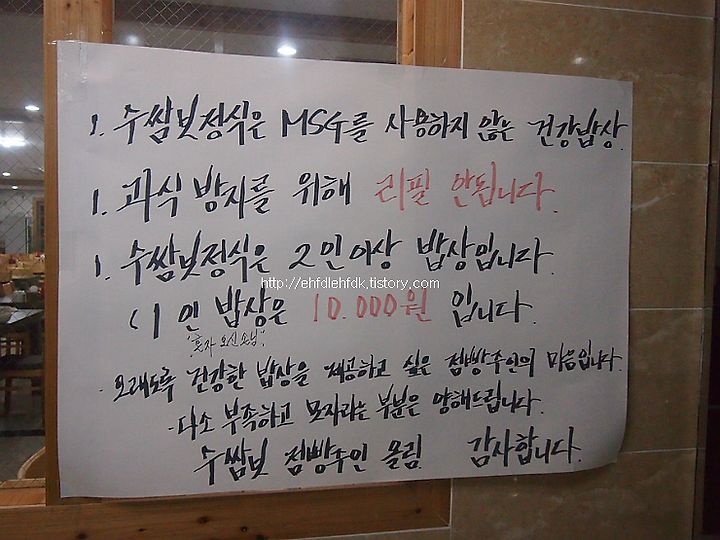 1. 수쌈빛정식은 MSG를 사용하지 않는 건강밥상.
1. 과식 방지를 위해 리필 안됩니다.
1. 수쌈빛정식은 2인이상 밥상입니다.
http://ehfdlehfdk.tistory.com
(1인 밥상은 10.000원 입니다.
"혼자 오신 손님"
- 오래도록 건강한 밥상을 제공하고 싶은 점빵주인의 마음입니다.
- 다소 부족하고 모자라는 부분은 양해드립니다.
수쌈빛 점빵주인 올림. 감사합니다.